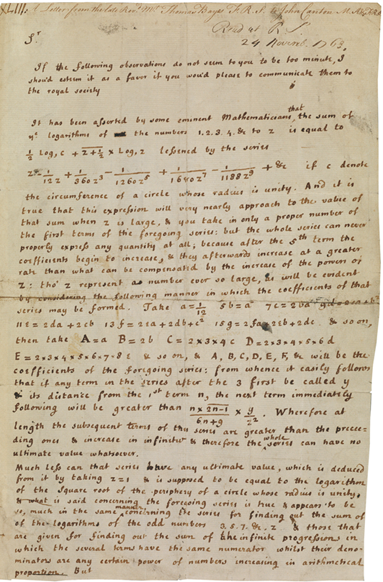 XLIII. A Letter from the late Revd. Mr. Thomas Bayes F.R.S. to John Canton M.A. &
Read at R.S.
24 Novemb. 1763.
Sr.
If the following observations do not seem to you to be too minute, I
should esteem it as a favor if you would please to communicate them to
the royal society
It has been asserted by some eminent Mathematicians that the sum of
ye logarithms of the numbers 1. 2. 3. 4. &c to z is equal to
½ Log, c + z+½ × Log, z lessened by the series
z − 1/12z + 1/360z³ − 1/1260z⁵ + 1/1680z⁷ − 1/1188z⁹ + &c if c denote
the circumference of a circle whose radius is unity. And it is
true that this expression will very nearly approach to the value of
that sum when z is large, & you take in only a proper number of
the first terms of the foregoing series: but the whole series can never
properly express any quantity at all; because after the 5th term the
coefficients begin to increase, & they afterwards increase at a greater
rate than what can be compensated by the increase of the powers of
z: tho' z represent a number ever so large, as will be evident
by considering the following manner in which the coefficients of that
series may be formed. Take a=1/12 5b=a² 7c=2ba 9d=2ca+b²
11e=2da+2cb 13f=2ea+2db+c² 15g=2fa+2eb+2dc & so on,
then take A=a B=2b C=2×3×4c D=2×3×4×5×6d
E=2×3×4×5×6×7×8e & so on, & A, B, C, D, E, F, &c will be the
coefficients of the foregoing series: from whence it easily follows
that if any term in the series after the 3 first be called y
& its distance from the 1st term n, the next term immediately
following will be greater than n×2n−1/6n+9 × y/z². Wherefore at
length the subsequent terms of this series are greater than the prece-
ding ones & increase in infinitum & therefore the whole series can have no
ultimate value whatsoever.
Much less can that series have any ultimate value, which is deduced
from it by taking z=1 & is supposed to be equal to the logarithm
of the square root of the periphery of a circle whose radius is unity,
& what is said concerning the foregoing series is true & appears to be
so, much in the same manner concerning the series for finding out the sum of
of the logarithms of the odd numbers 3. 5. 7. &c. z & those that
are given for finding out the sum of the infinite progressions in
which the several terms have the same numerator whilst their deno-
minators are any certain power of numbers increasing in arithmetical
proportion. But